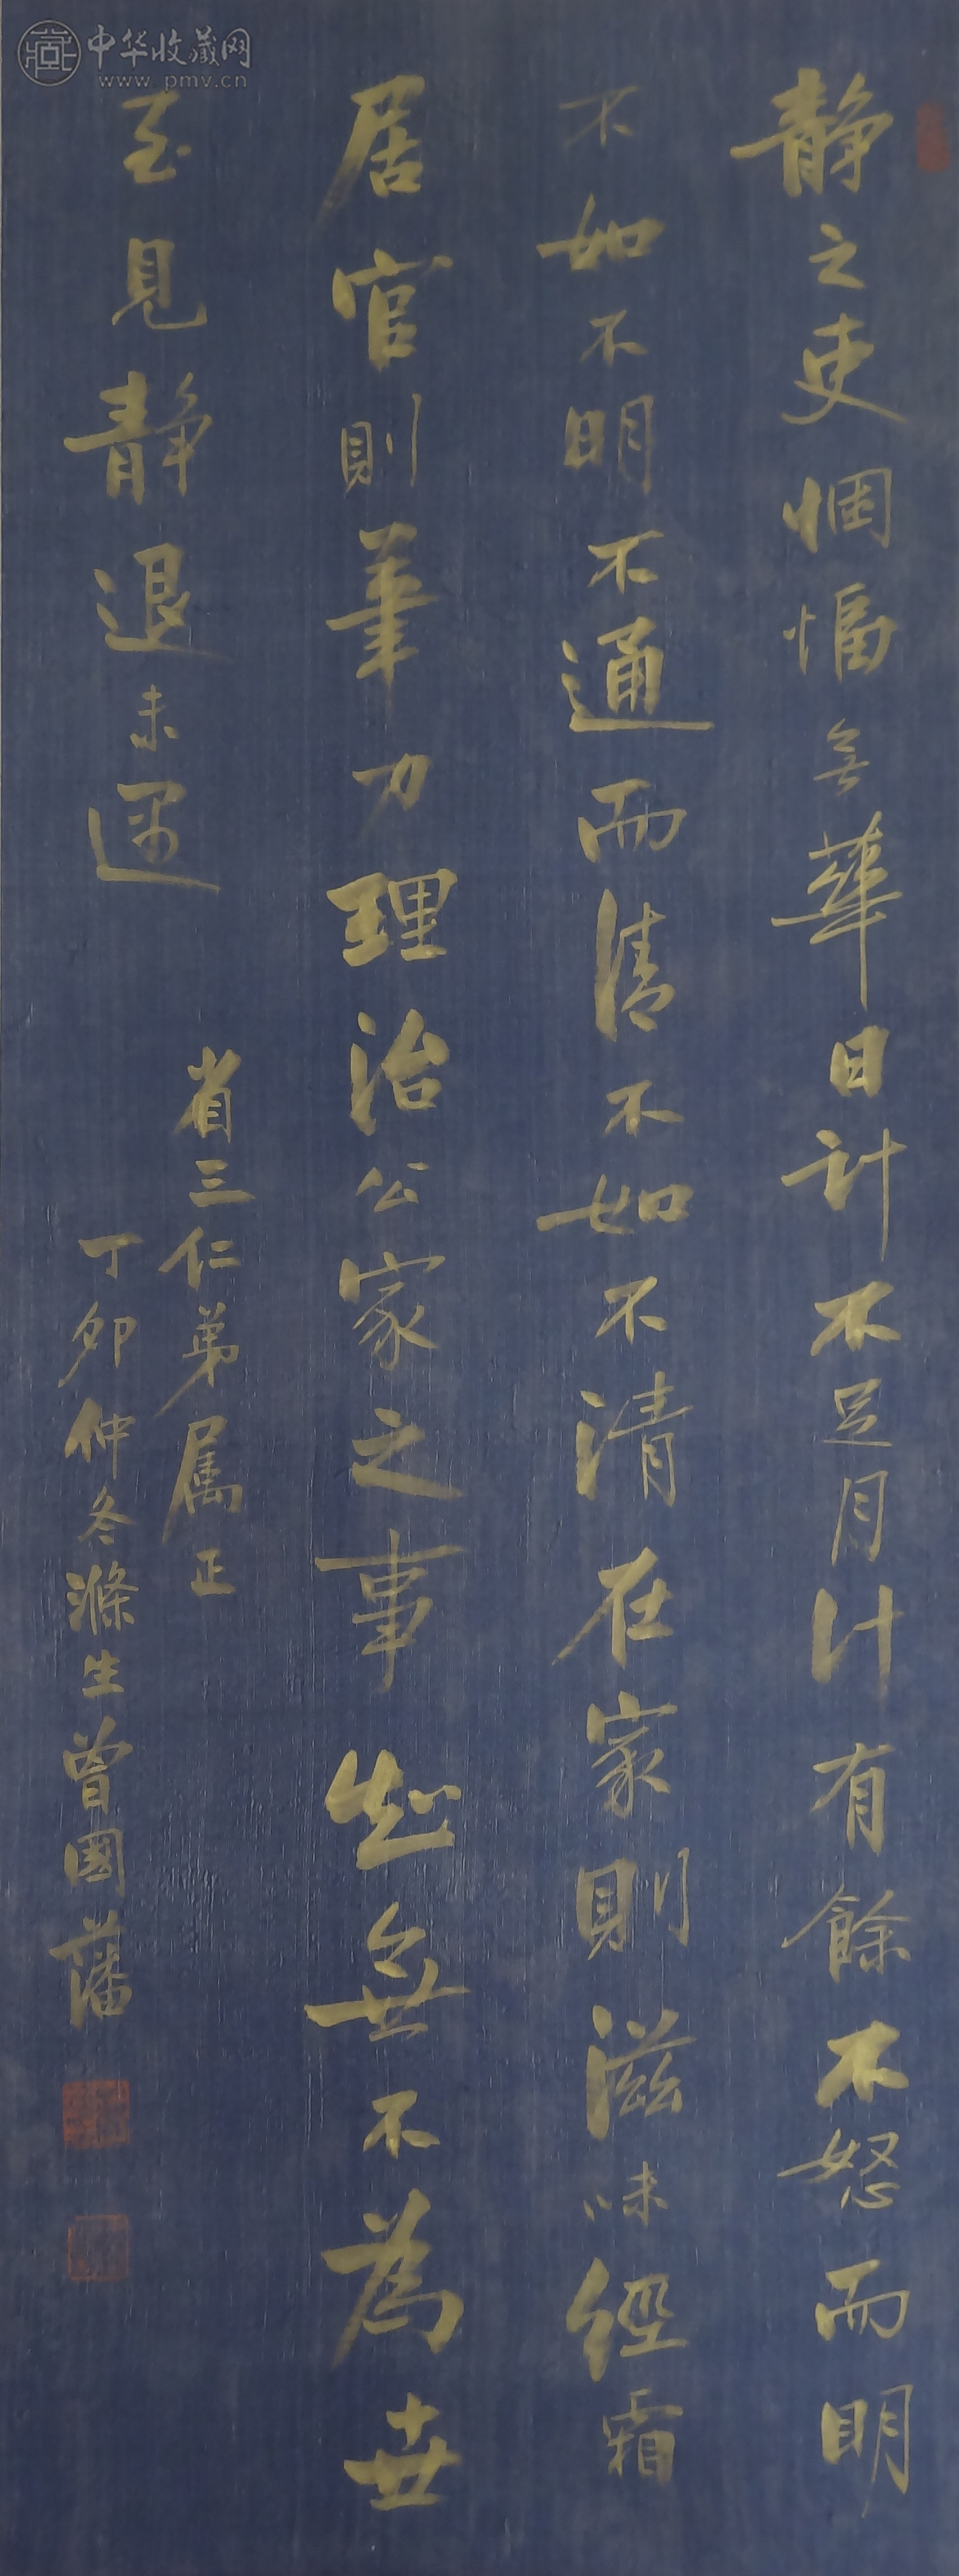 中华收藏网
www.pmv.cn
静之吏悃愊無華日計不足月计有餘不怒而明
不如不明不通而清不如不清在家則滋味經霜
居官則筆力理治公家之事知無不為世
至見静退未遑
省三仁弟属正
丁卯仲冬滌生曾國藩